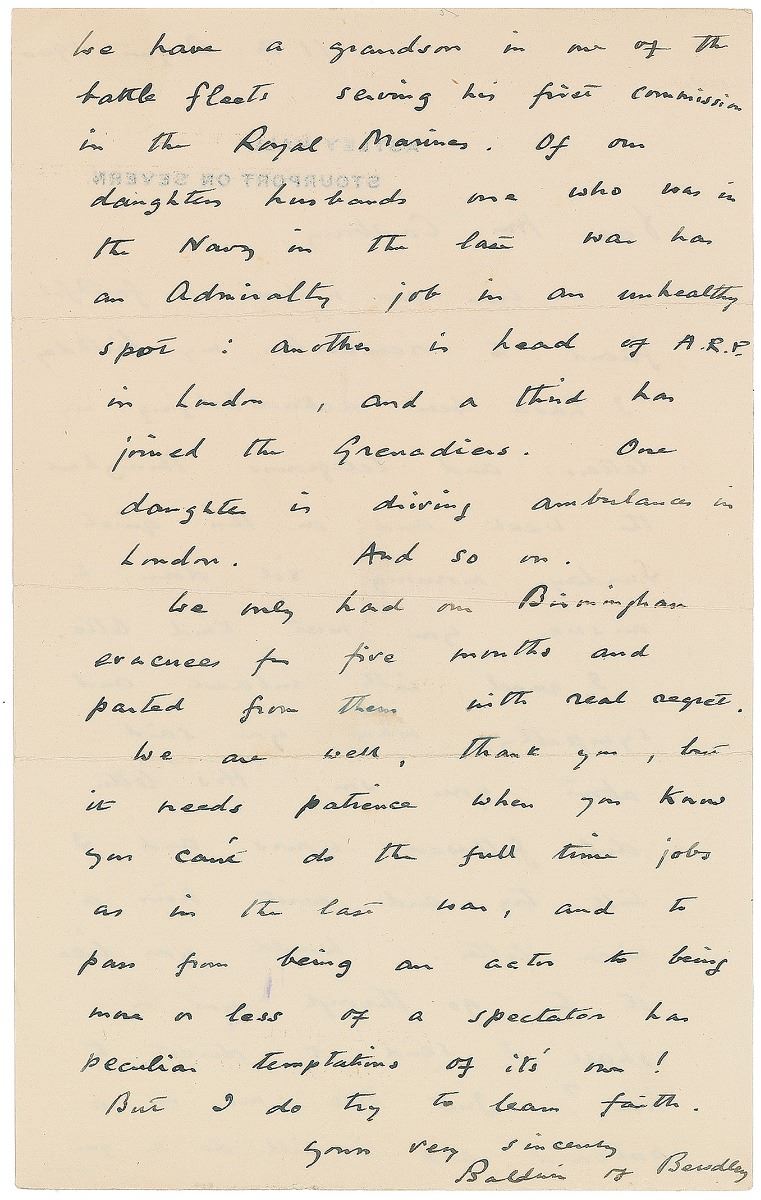 We have a grandson in one of the
battle fleets serving his first commission
in the Royal Marines. Of our
daughters husbands one who was in
the Navy in the last war has
an Admiralty job in an unhealthy
spot : another is head of A.R.P.
in London, and a third has
joined the Grenadiers. One
daughter is driving ambulances in
London. And so on.
We only had our Birmingham
evacuees for five months and
parted from them with real regret.
We are well, thank you, but
it needs patience when you know
you can't do the full time jobs
as in the last war, and to
pass from being an actor to being
more or less of a spectator has
peculiar temptations of it's own!
But I do try to learn faith.
Yours very sincerely
Baldwin of Bewdley
STOURPORT ON SEVERN